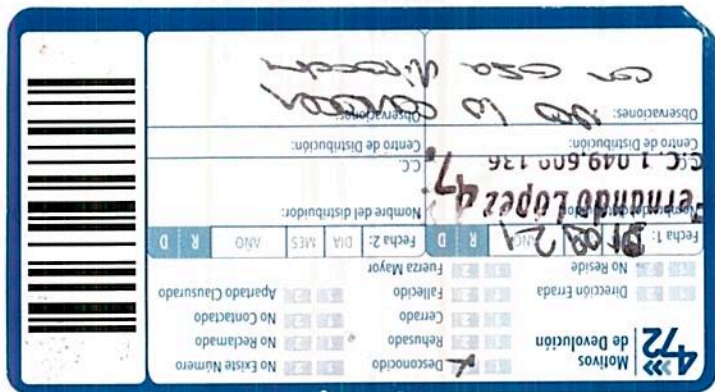 472
Motivos
de Devolución
Desconocido
Rehusado
Cerrado
Fallecido
Fuerza Mayor
No Existe Número
No Reclamado
No Contactado
Apartado Clausurado
Dirección Errada
No Reside
Fecha 1: AÑO R D
Fecha 2: DIA MES AÑO R D
Fernando López
Nombre del distribuidor:
C.C. 1.049.600.136
C.C.
Centro de Distribución:
Centro de Distribución:
Observaciones: NO lo conocen
Observaciones: